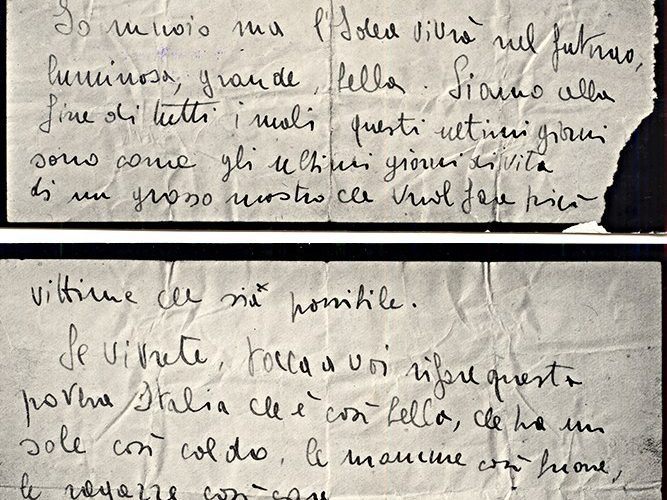 Io muoio ma l'Idea vivrà nel futuro,
luminosa, grande, bella. Siamo alla
fine di tutti i mali questi ultimi giorni
sono come gli ultimi giorni di vita
di un grosso mostro che vuol fare più
vittime che sia possibile.
Se vivrete, tocca a voi rifare questa
povera Italia che è così bella, che ha un
sole così caldo, le mamme così buone,
le ragazze così care